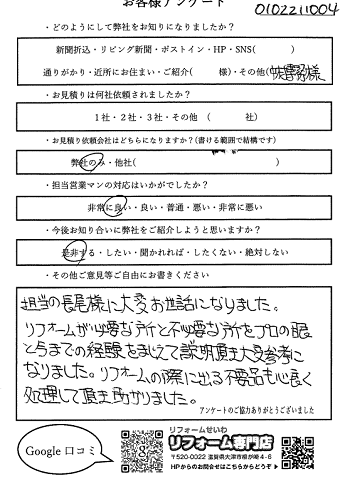 お客様アンケート
0102211004
・どのようにして弊社をお知りになりましたか？
新聞折込・リビング新聞・ポストイン・HP・SNS(　　　)
通りがかり・近所にお住まい・ご紹介(　　　様)・その他(　　　様
・お見積りは何社依頼されましたか？
1社・2社・3社・その他（　　　社）
・お見積り依頼会社はどちらになりますか？(書ける範囲で結構です)
弊社のみ・他社(　　　)
・担当営業マンの対応はいかがでしたか？
非常に良い・良い・普通・悪い・非常に悪い
・今後お知り合いに弊社をご紹介しようと思いますか？
是非する・したい・聞かれれば・したくない・絶対しない
・その他ご意見等ご自由にお書きください
担当の長尾様に大変お世話になりました。
リフォームが必要な所と不必要な所をプロの眼
と今までの経験をまじえて説明頂き大変参考に
なりました。リフォームの際に出る不要品も心良く
処理して頂き助かりました。
アンケートのご協力ありがとうございました
Google 口コミ
リフォームせいわ
リフォーム専門店
〒520-0022 滋賀県大津市柳が崎4-6
HPからのお問合せはこちらからどうぞ▶